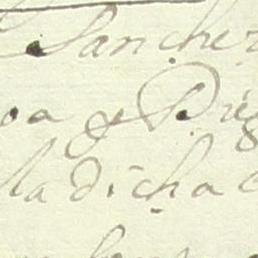 Sanchez
oa y Die
la dicha